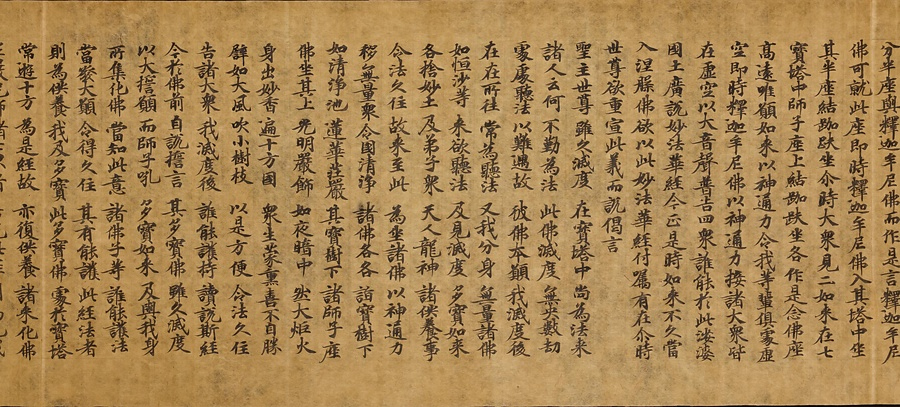 分半座與釋迦牟尼佛而作是言釋迦牟尼
佛可就此座即時釋迦牟尼佛入其塔中坐
其半座結跏趺坐尒時大衆見二如來在七
寶塔中師子座上結跏趺坐各作是念佛座
高遠唯願如來以神通力令我等輩俱處虛
空即時釋迦牟尼佛以神通力接諸大衆皆
在虛空以大音聲普告四衆誰能於此娑婆
國土廣說妙法華經今正是時如來不久當
入涅槃佛欲以此妙法華經付囑有在尒時
世尊欲重宣此義而說偈言
聖主世尊 雖久滅度 在寶塔中 尚為法來
諸人云何 不勤為法 此佛滅度 無央數劫
處處聽法 以難遇故 彼佛本願 我滅度後
在在所往 常為聽法 又我分身 無量諸佛
如恒沙等 來欲聽法 及見滅度 多寶如來
各捨妙土 及弟子衆 天人龍神 諸供養事
令法久住 故來至此 為坐諸佛 以神通力
移無量衆 令國清淨 諸佛各各 詣寶樹下
如清淨池 蓮華莊嚴 其寶樹下 諸師子座
佛坐其上 光明嚴飾 如夜暗中 然大炬火
身出妙香 遍十方國 衆生蒙熏 喜不自勝
譬如大風 吹小樹枝 以是方便 令法久住
告諸大衆 我滅度後 誰能護持 讀說斯經
今於佛前 自說誓言 其多寶佛 雖久滅度
以大誓願 而師子吼 多寶如來 及與我身
所集化佛 當知此意 諸佛子等 誰能護法
當發大願 令得久住 其有能護 此經法者
則為供養 我及多寶 此多寶佛 處於寶塔
常遊十方 為是經故 亦復供養 諸來化佛